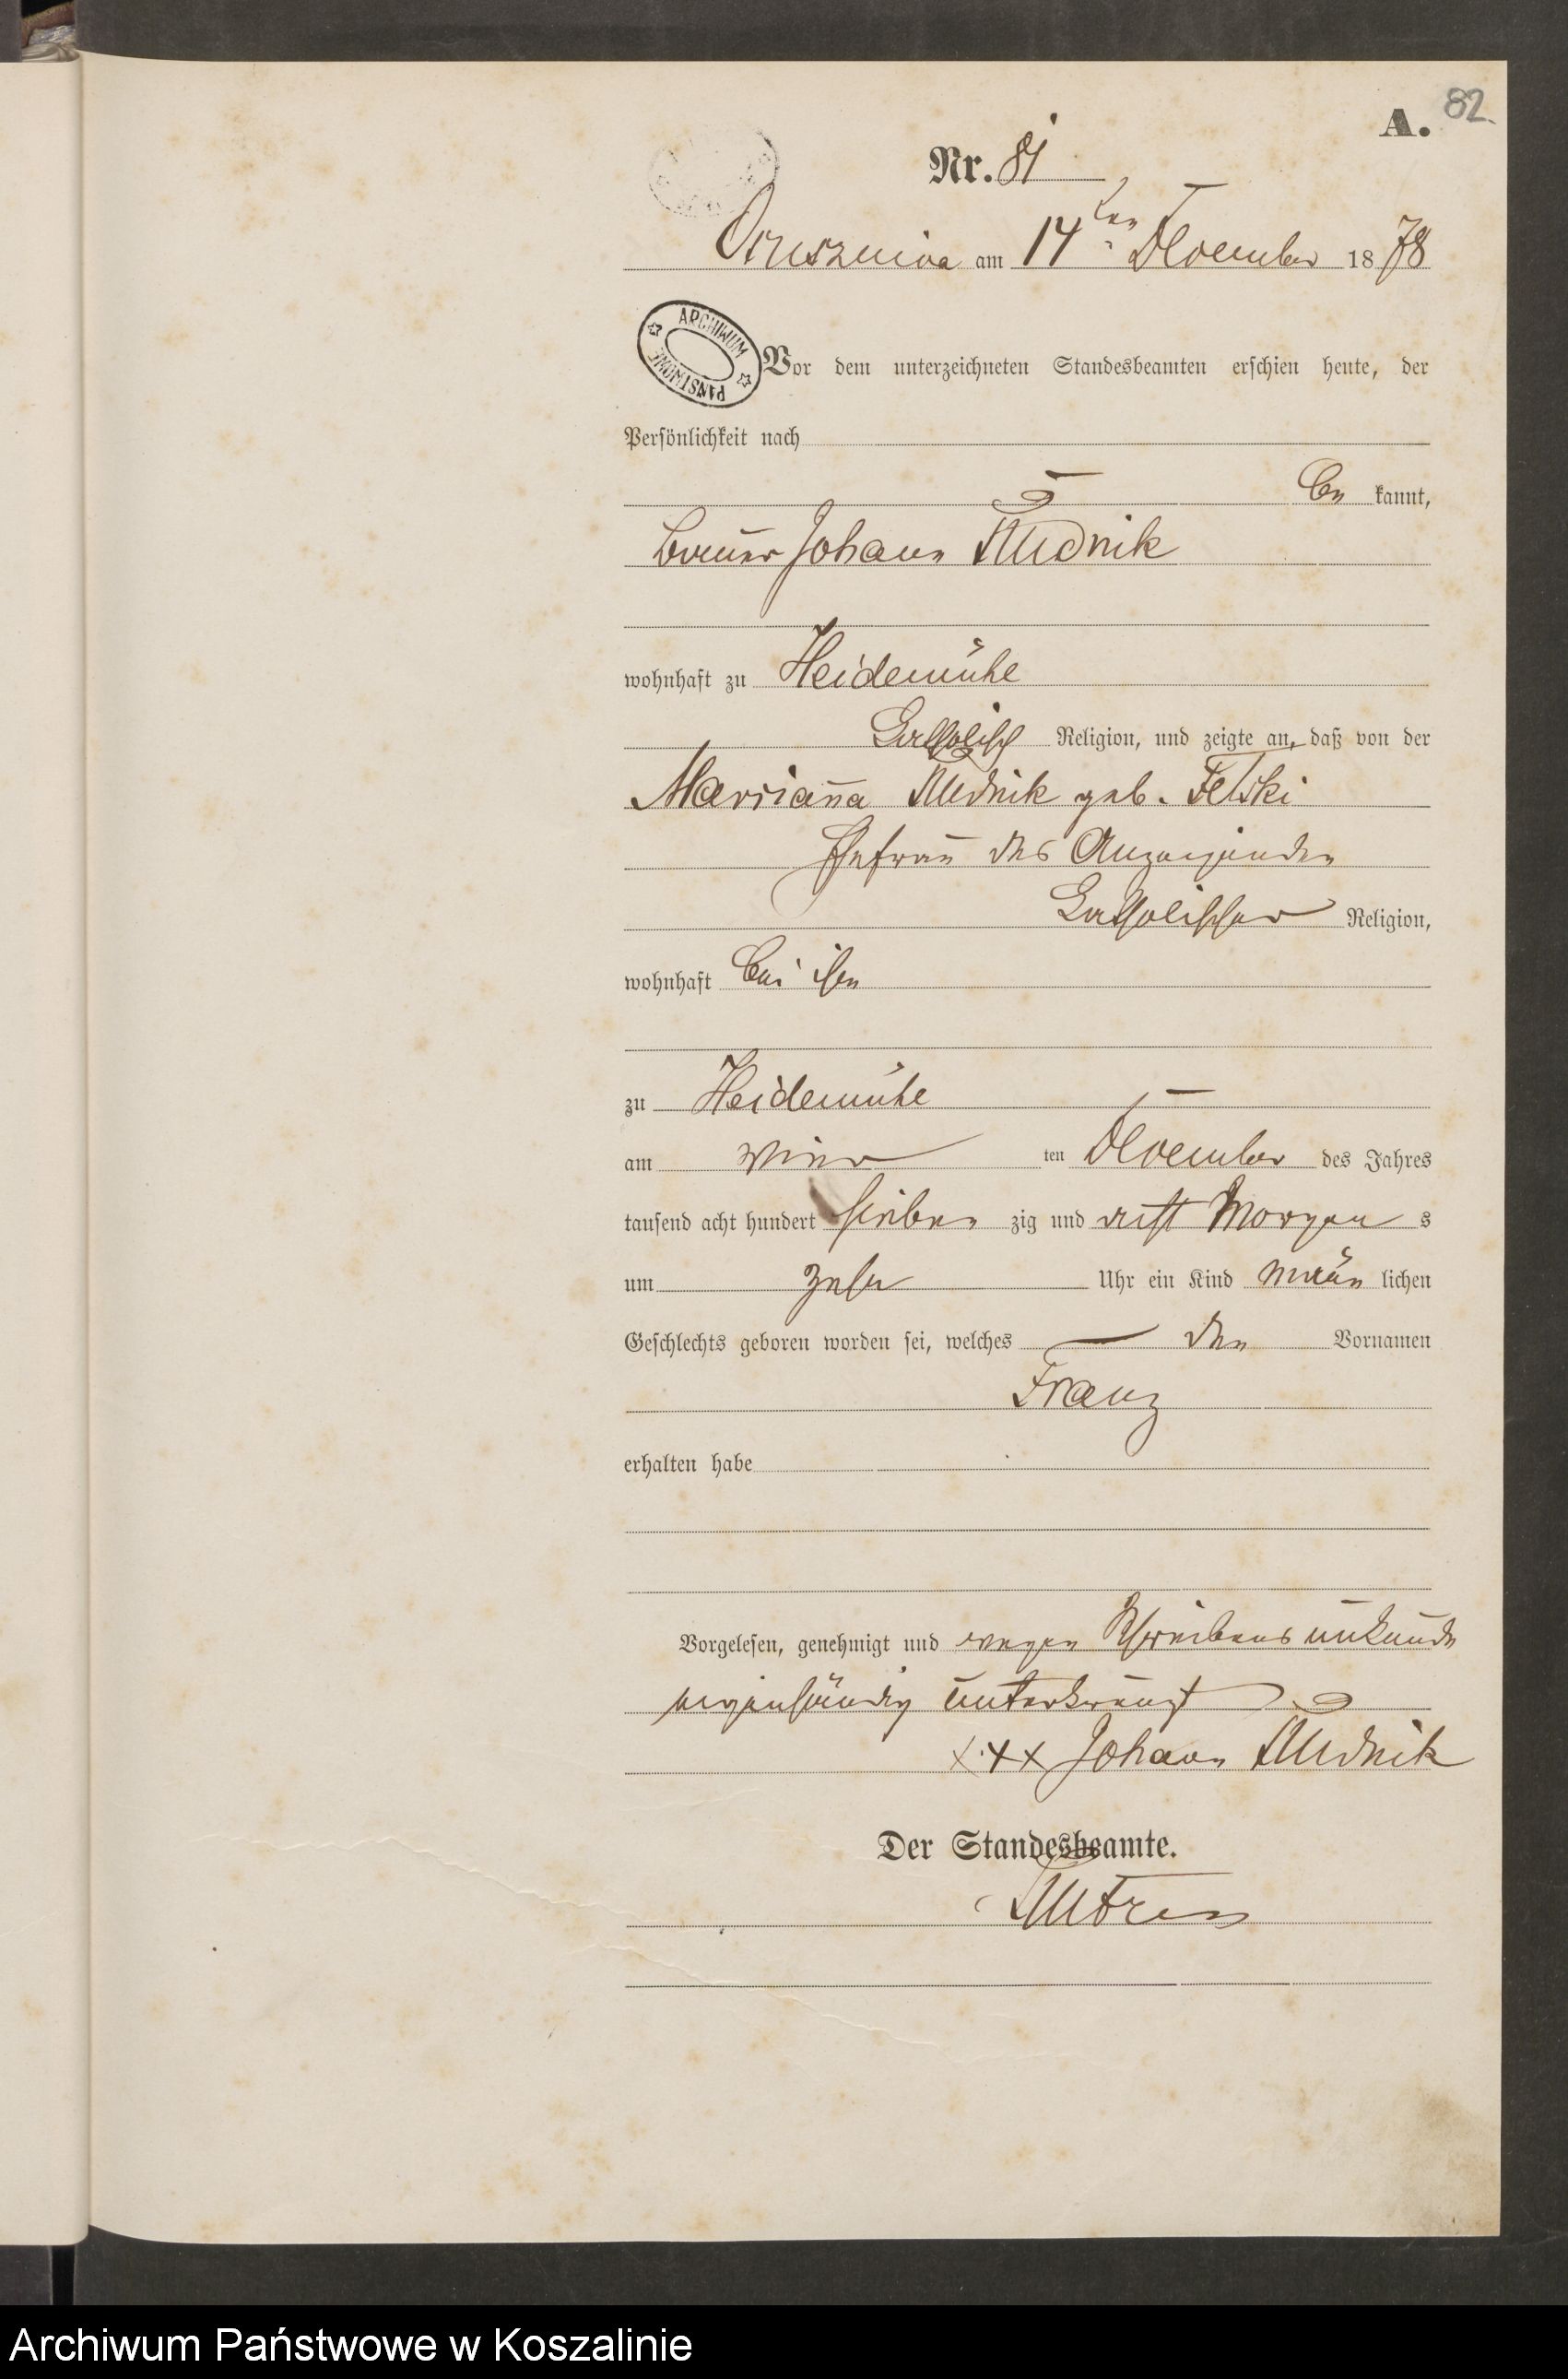 82.
A.
Nr. 81
am 14ten November 1878
ARCHIWUM PAŃSTWOWE
Vor dem unterzeichneten Standesbeamten erschien heute, der
Persönlichkeit nach
be kannt,
Bauer Johann Rudnik
wohnhaft zu Heidemühe
Katholisch Religion, und zeigte an, daß von der
Marrianna Rudnik geb. Felski
Ehefrau des Anzeigenden
Katholischer Religion,
wohnhaft bei ihm
zu Heidemühe
am vier ten November des Jahres
tausend acht hundert sieben zig und acht Morgen s
um zehn Uhr ein Kind män lichen
Geschlechts geboren worden sei, welches den Vornamen
Franz
erhalten habe
Vorgelesen, genehmigt und wegen Schreibens unkunde
eigenhändig unterkreuzt
xxx Johann Rudnik
Der Standesbeamte.
Archiwum Państwowe w Koszalinie